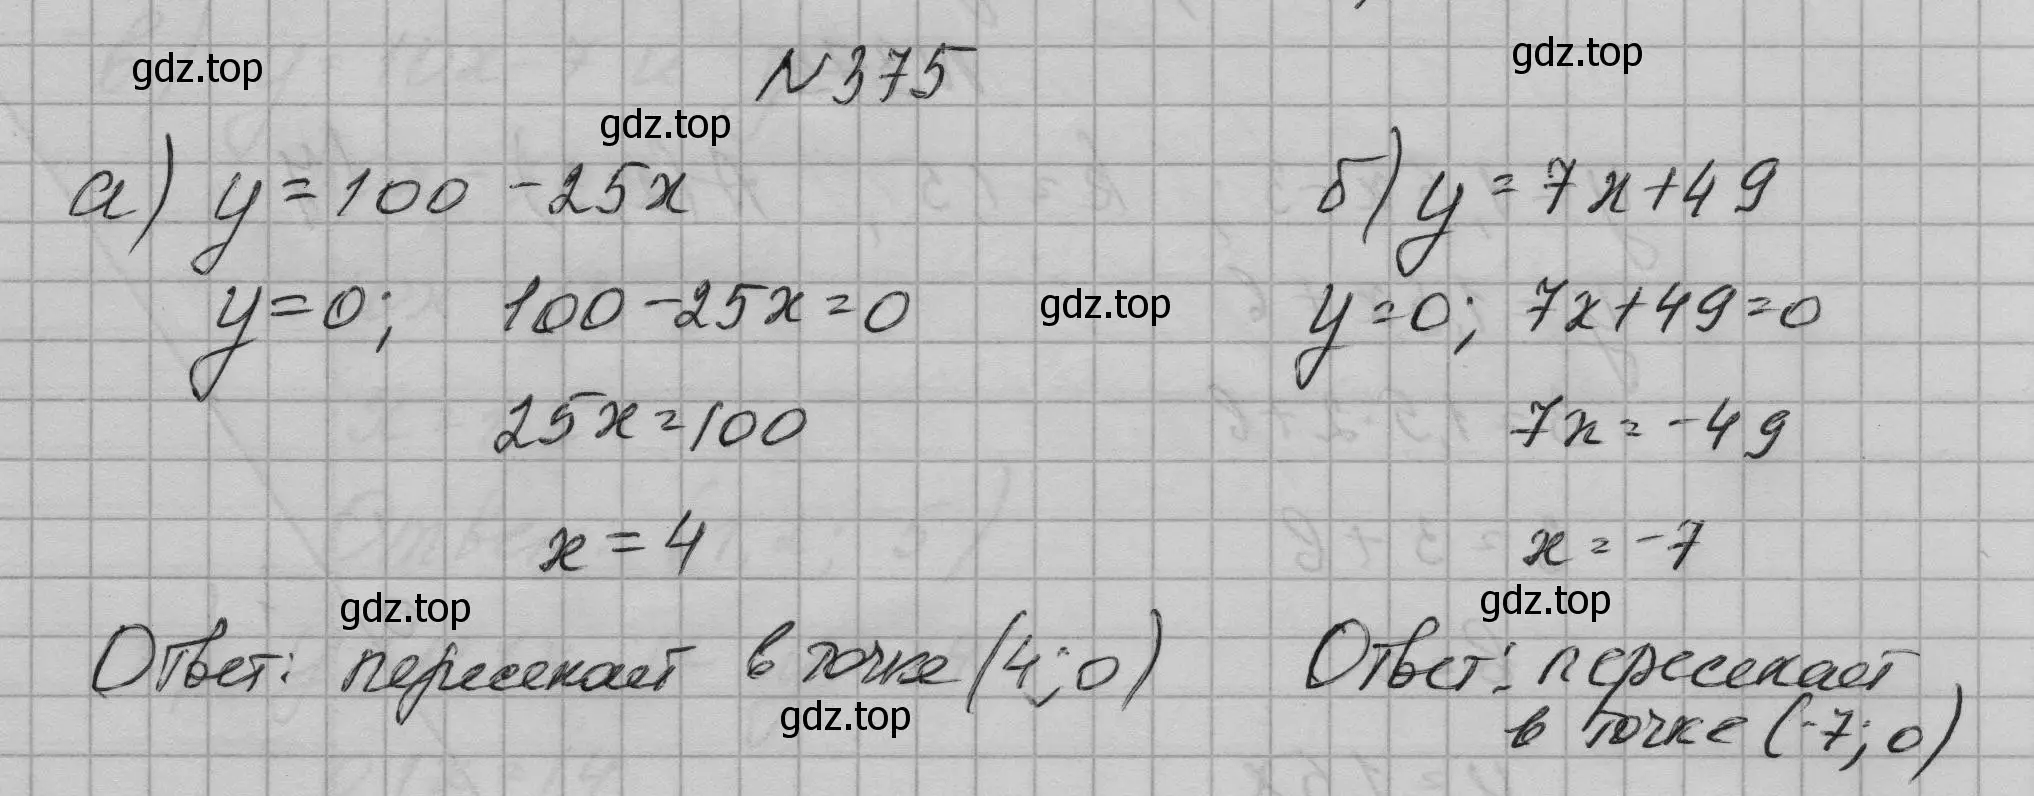 gdz.top
N 375
gdz.top
gdz.top
а) y = 100 - 25x
y = 0; 100 - 25x = 0
25x = 100
x = 4
gdz.top
Ответ: пересекает в точке (4; 0)
gdz.top
gdz.top
б) y = 7x + 49
y = 0; 7x + 49 = 0
7x = -49
x = -7
gdz.top
Ответ: пересекает
в точке (-7; 0)